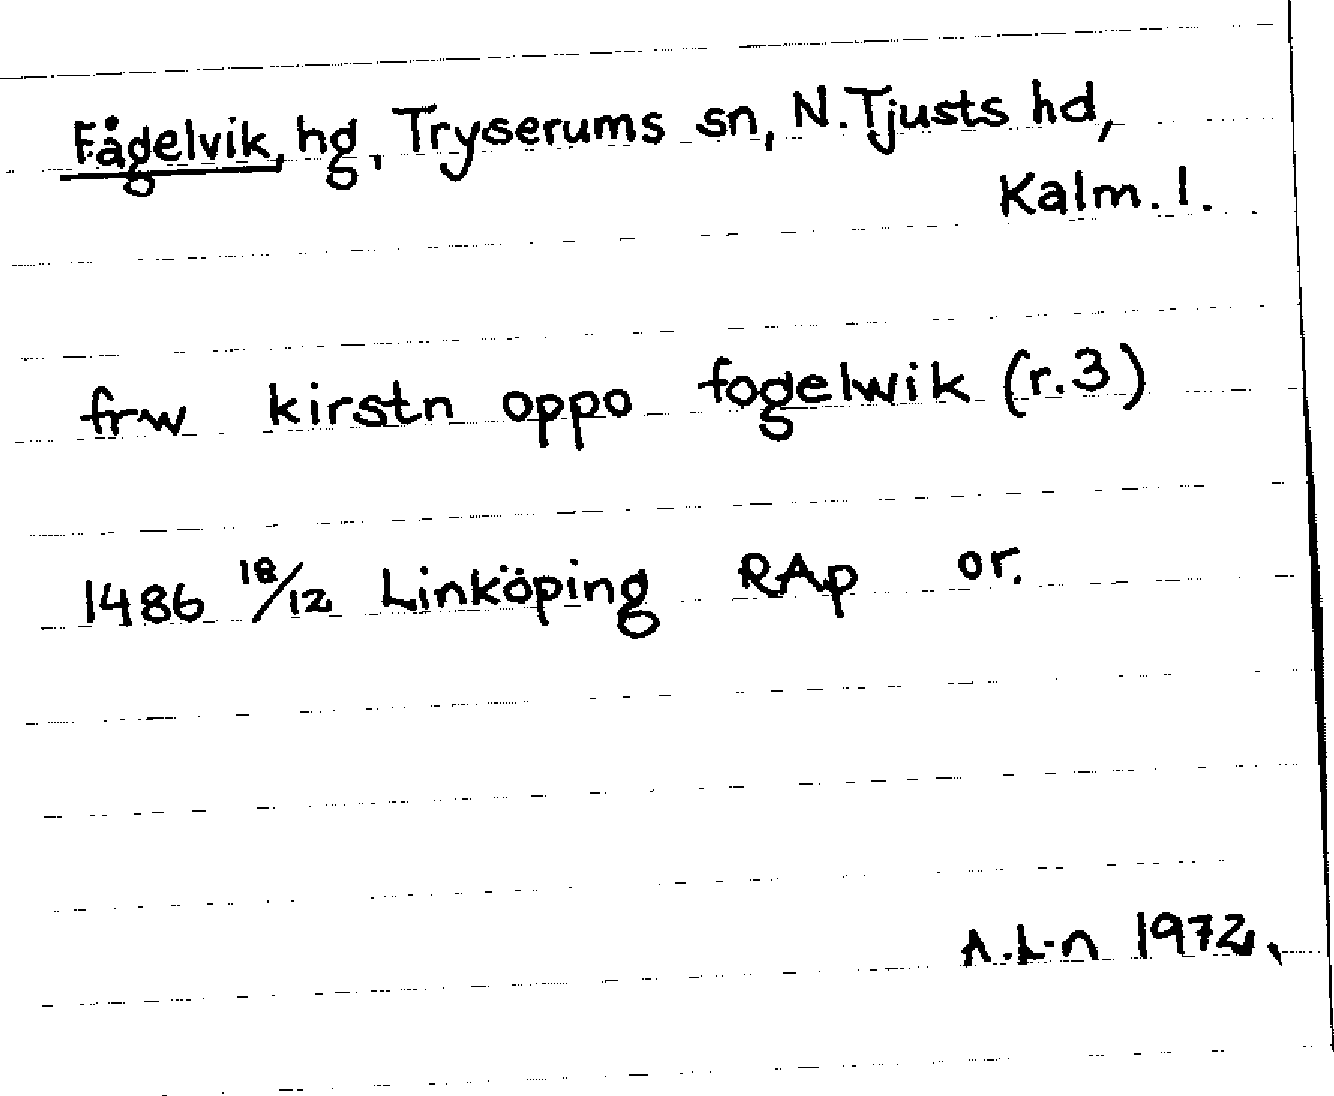 Fågelvik, hg, Tryserums sn, N. Tjusts hd,
Kalm. l.
frw kirstn oppo fogelwik (r.3)
1486 18/12 Linköping RAp or.
A.L-n 1972.